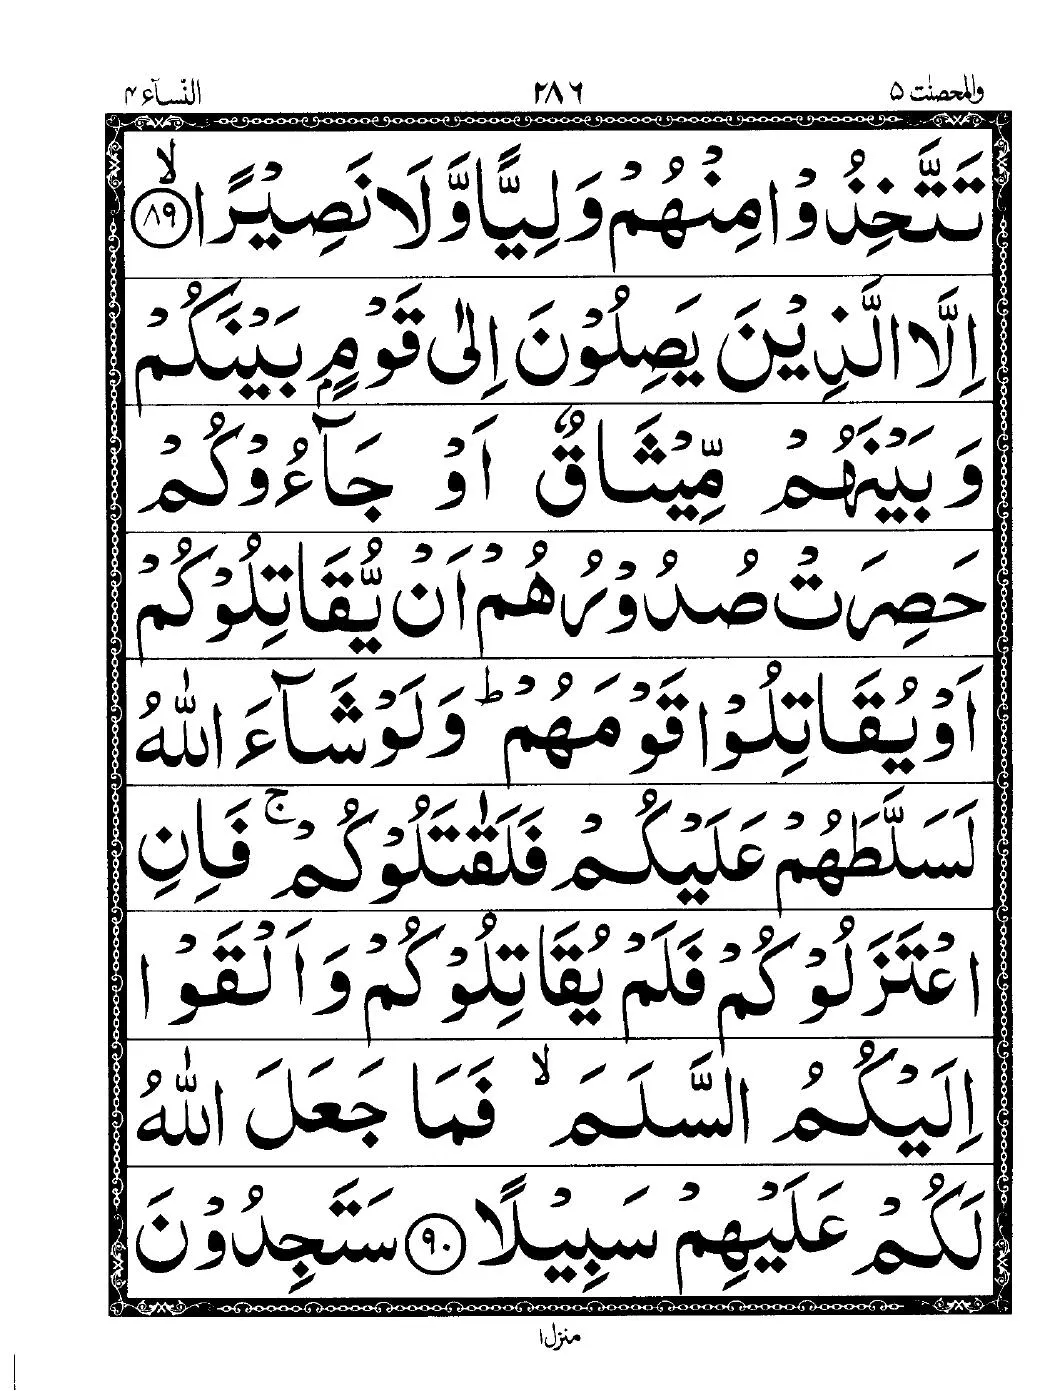 والمحصنٰت ۵ ۲۸۶ النّسآء ۴
تَتَّخِذُوْا مِنْهُمْ وَلِيًّا وَّلَا نَصِيْرًا ۙ ۸۹
اِلَّا الَّذِيْنَ يَصِلُوْنَ اِلٰى قَوْمٍۭ بَيْنَكُمْ
وَبَيْنَهُمْ مِّيْثَاقٌ اَوْ جَآءُوْكُمْ
حَصِرَتْ صُدُوْرُهُمْ اَنْ يُّقَاتِلُوْكُمْ
اَوْ يُقَاتِلُوْا قَوْمَهُمْ ؕ وَلَوْ شَآءَ اللّٰهُ
لَسَلَّطَهُمْ عَلَيْكُمْ فَلَقٰتَلُوْكُمْ ۚ فَاِنِ
اعْتَزَلُوْكُمْ فَلَمْ يُقَاتِلُوْكُمْ وَاَلْقَوْا
اِلَيْكُمُ السَّلَمَ ۙ فَمَا جَعَلَ اللّٰهُ
لَكُمْ عَلَيْهِمْ سَبِيْلًا ۹۰ سَتَجِدُوْنَ
منزل ۱